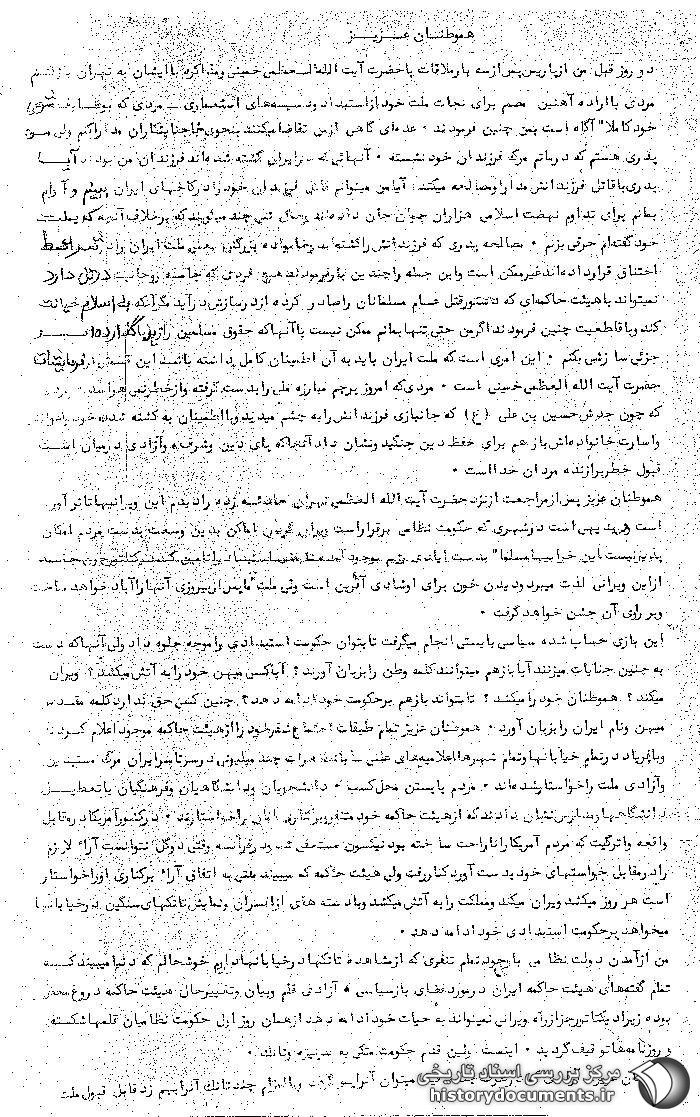 هموطنان عزیز
دو روز قبل من از پاریس پس از سه بار ملاقات با حضرت آیت الله العظمی خمینی و مذاکره با ایشان به تهران بازگشتم
مردی با اراده آهنین مصمم برای نجات ملت خود از استبداد و دسیسه‌های استعماری ـ مردی که بوظایف شرعی
خود کاملا" آگاه است بمن چنین فرمودند • عده‌ای گاهی از من تقاضا میکنند بنحوی با جنایتکاران مدارا کنم ولی من
پدری هستم که در ماتم مرگ فرزندان خود نشسته • آنهائی که در ایران کشته شده‌اند فرزندان من بودند آیا
پدری با قاتل فرزندانش مدارا و مصالحه میکند؟ آیا من میتوانم قاتل فرزندان خود را در کاخهای ایران ببینم و آرام
بمانم برای تداوم نهضت اسلامی هزاران جوان جان داده‌اند
خود گفته‌ام حرفی بزنم • مصالحه پدری که فرزندانش را کشته‌اند و خانواده بزرگش یعنی ملت ایران را در
اختناق قرار داده‌اند غیر ممکن است و این جمله را چندین بار فرمودند هیچ فردی که جامه روحانیت در تن دارد
نمیتواند با هیئت حاکمه‌ای که دستور قتل عام مسلمانان را صادر کرده از در سازش درآید مگر آنکه به اسلام خیانت
کند و با قاطعیت چنین فرمودند اگر من حتی تنها بمانم ممکن نیست با آنها که حقوق مسلمین را زیر پا گذارده‌اند
جزئی سازش بکنم • این امری است که ملت ایران باید به آن اطمینان کامل داشته باشد این قسمتی از فرمایشات
حضرت آیت الله العظمی خمینی است • مردی که امروز پرچم مبارزه ملی را بدست گرفته
که چون جدش حسین بن علی (ع) که جانبازی فرزندانش را به چشم میدید و با اطمینان به کشته شدن خود
و اسارت خانواده‌اش باز هم برای حفظ دین جنگید و نشان داد آنجا که پای دین و شرف و آزادی در میان است
قبول خطر برازنده مردان خداست •
هموطنان عزیز پس از مراجعت از نزد حضرت آیت الله العظمی تهران را دیدم این ویرانیها تاثرآور
است بدیهی است در شهری که حکومت نظامی برقرار است ویرانی اماکن بدین وسعت بدست مردم امکان
پذیر نیست این خرابیها مسلما" بدست ایادی رژیم بوجود آمده
از این ویرانی لذت میبرد و دیدن خون برای او شادی آفرین است ولی ملت ما پس از پیروزی آنها را آباد خواهد ساخت
و بر روی آن جشن خواهد گرفت •
این بازی حساب شده سیاسی بایستی انجام میگرفت تا بتوان حکومت استبدادی را موجه جلوه داد ولی آنها که دست
به چنین جنایات میزنند آیا باز هم میتوانند کلمه وطن را بزبان آورند؟ آیا کسی میهن خود را به آتش میکشد؟ ویران
میکند؟ هموطنان خود را میکشد؟ تا بتواند باز هم بر حکومت خود ادامه دهد؟ چنین کسی حق ندارد کلمه مقدس
میهن و نام ایران را بزبان آورد • هموطنان عزیز تمام طبقات اجتماع تنفر خود را از هیئت حاکمه موجود اعلام کردند
و با فریاد در تمام خیابانها و تمام شهرها چند میلیونی در سرتاسر ایران مرگ مستبدین
و آزادی ملت را خواستار شده‌اند • مردم با بستن محل کسب • دانشجویان و دانشگاهیان و فرهنگیان با تعطیل
دانشگاهها و مدارس نشان دادند که از هیئت حاکمه خود متنفر و برکناری آنان را خواستارند • در کشور آمریکا در مقابل
واقعه واترگیت که مردم آمریکا را ناراحت ساخته بود نیکسون مستعفی شد و در فرانسه وقتی دوگل نتوانست آراء لازم
را در مقابل خواستهای خود بدست آورد کنار رفت ولی هیئت حاکمه که میبیند ملتی به اتفاق آراء برکناری او را خواستار
است هر روز میکشد ویران میکند و مملکت را به آتش میکشد و با دسته هائی از افسران و نمایش تانکهای سنگین در خیابانها
میخواهد بر حکومت استبدادی خود ادامه دهد •
من از آمدن دولت نظامی با وجود تمام تنفری که از مشاهده تانکها در خیابانها داریم خوشحالم که دنیا میبیند که
تمام گفته‌های هیئت حاکمه ایران در مورد فضای باز سیاسی • آزادی قلم و بیان و تغییر حال هیئت حاکمه دروغ محض
بوده زیرا دیکتاتور جز از راه ویرانی نمیتواند به حیات خود ادامه دهد از همان روز اول حکومت نظامیان قلمها شکسته
و روزنامه‌ها توقیف گردید • اینست اولین قدم حکومت متکی به سرنیزه و تانک •
میتوان چند تانک قابل قبول ملت
مرکز بررسی اسناد تاریخی
historydocuments.ir